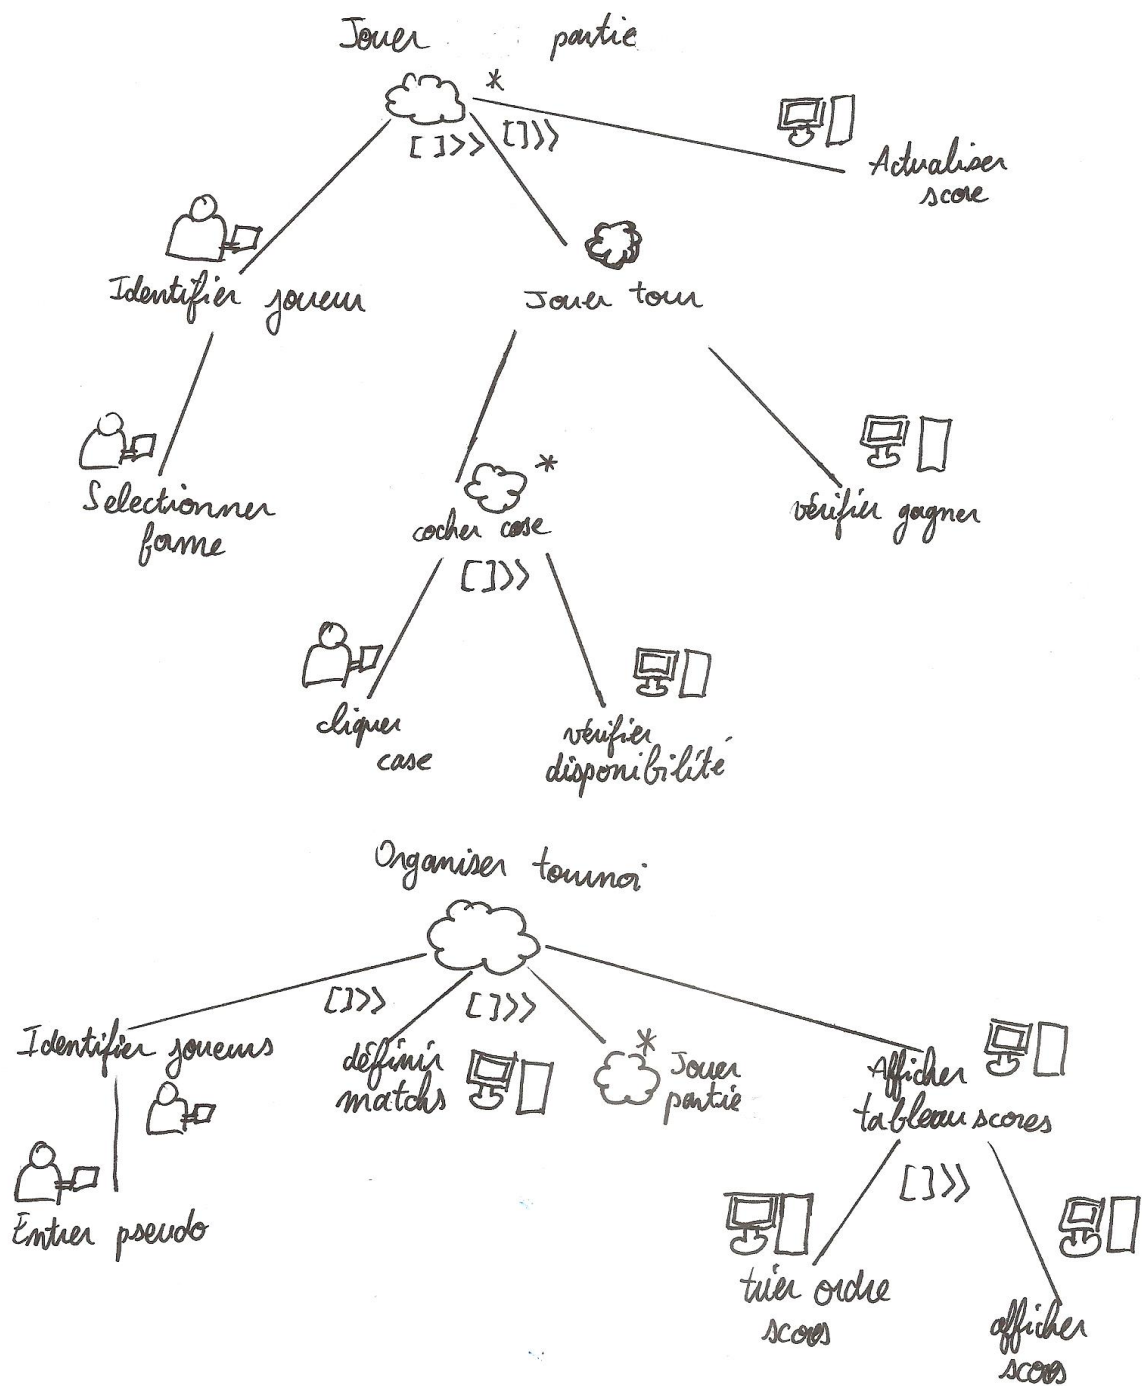 Jouer partie
*
[]>> []>>
Actualiser
score
Identifier joueur
Jouer tour
Selectionner
forme
*
cocher case
[]>>
vérifier gagner
cliquer
case
vérifier
disponibilité
Organiser tournoi
[]>> []>>
Identifier joueurs
définir
matchs
*
Jouer
partie
Afficher
tableau scores
[]>>
Entrer pseudo
trier ordre
scores
afficher
scores